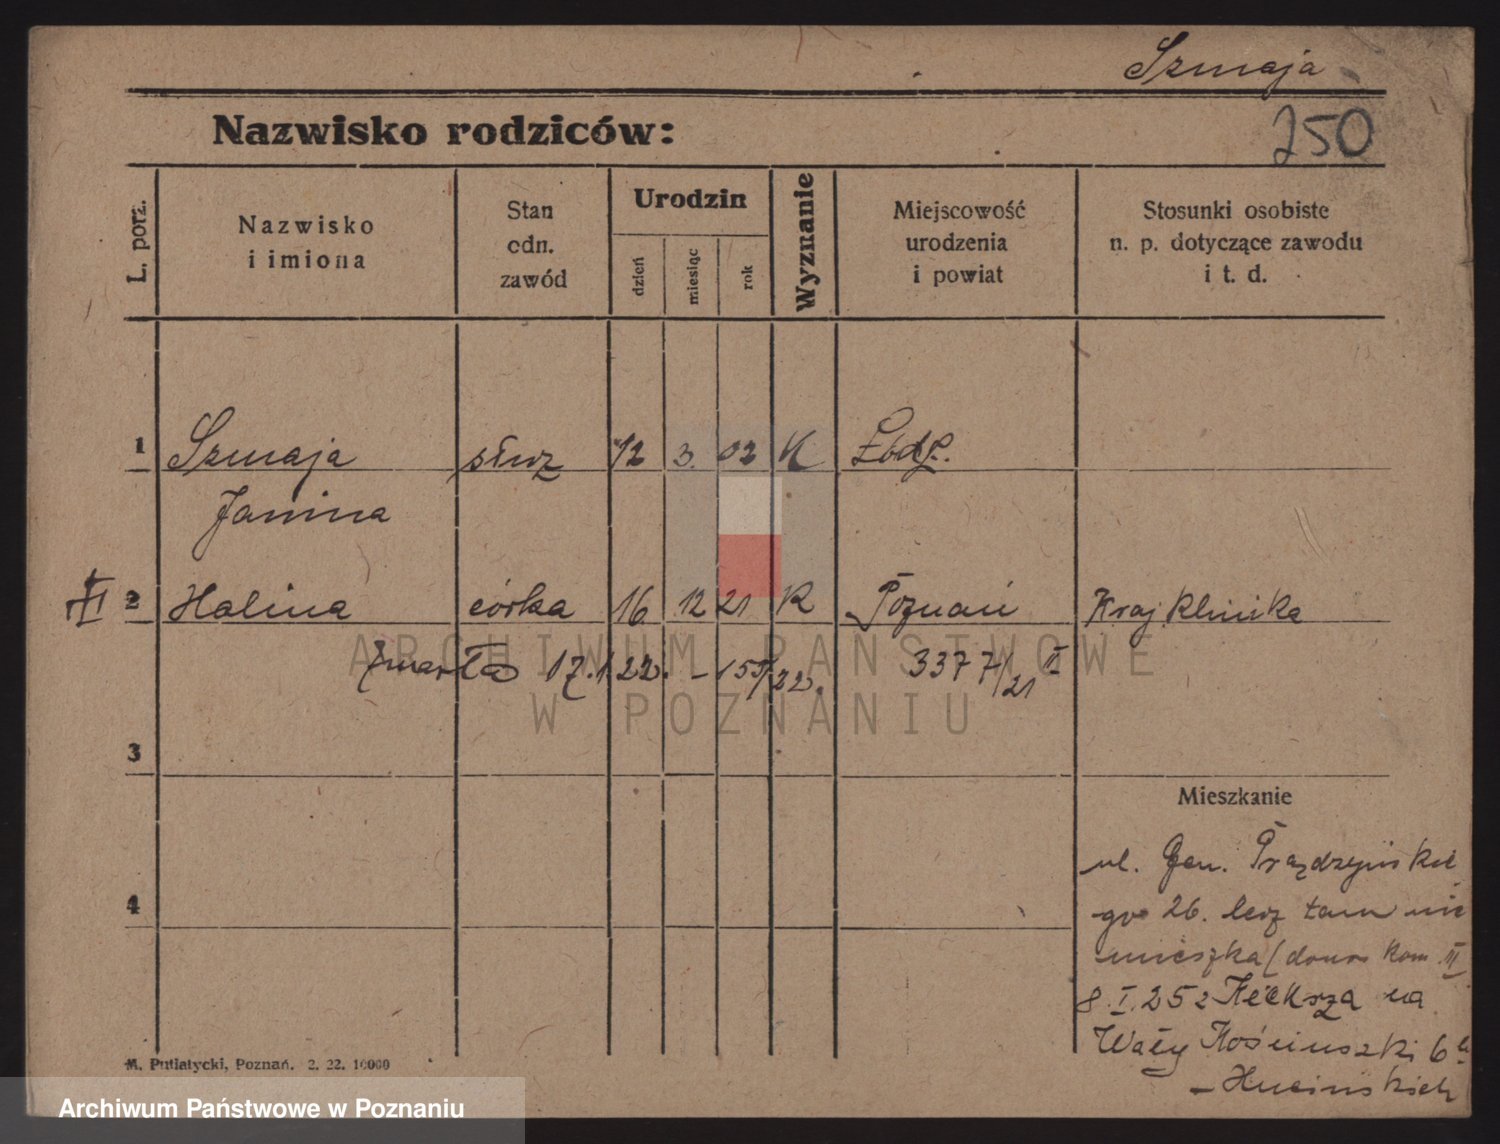 Szmaja
250
Nazwisko rodziców:
L. porz.
Nazwisko
i imiona
Stan
odn.
zawód
Urodzin
dzień
miesiąc
rok
Wyznanie
Miejscowość
urodzenia
i powiat
Stosunki osobiste
n. p. dotyczące zawodu
i t. d.
1 Szmaja służ 12 3. 02 K
Janina
2 Halina córka 16 12 21 K Poznań Kraj Klinika
zmarła 17.1.22. – 155/22. 3377/21 II
3
4
Mieszkanie
ul. Gen. Prądzyńskie
go 26. lecz tam nie
mieszka (donos kom. III
8.I.25 z Kiekrza na
Wały Kościuszki 6

M. Putiatycki, Poznań. 2. 22. 10000
ARCHIWUM PAŃSTWOWE
W POZNANIU
Archiwum Państwowe w Poznaniu